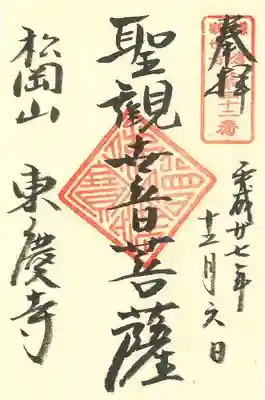 奉拝
平成廿七年
十二月六日
聖観世音菩薩
松岡山
東慶寺